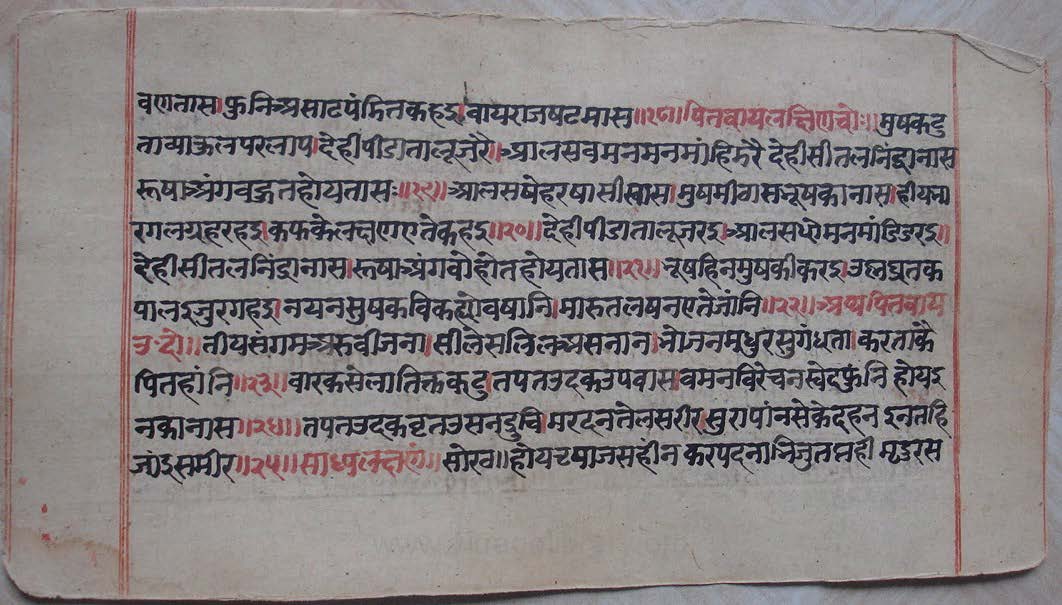 वणतास।फुनिअसाटपंडितकहइ।वायराजषटमास॥१८॥पितवायलक्षिणचोः॥मुषकटु
ताव्याऊलपरलाप।देहीपीडातालूजरै।आलसवमनमनमांहिफिरै।देहीसीतलनिंद्रानास
रूषाअंगवऊतहोयतास॥१९॥आलसषेहरषासीस्वास।मुषमीठासत्रूषकानास।हीयभा
रगलग्रहरहइ।कफकेलक्षणएतेकहइ॥२०॥देहीपीडातालूजरइ।आलसधोमनमांडिडरइ॥
देहीसीतलनिंद्रानास।रूषाअंगवोहोतहोयतास॥२१॥त्रूषहिनमुषकीकरइ।उछाव्रतक
पालइजुरगहइ।नयनमुषकविकह्योवषानि।मारुतलषनएतेजांनि॥२२॥अथपितवाय
उ-दो॥तीयसंगमअरुवीजना।सीलेसलिलअसनान।भोजनमधुरसुगंधता।करताकै
पितहांनि॥२३॥वारकसेलातिक्तकटु।तपतउदकउपवास।वमनविरेचनस्वेदफुंनिहोयइ
नकानास॥२४॥तपतउदकघृतउसनदुवि।मरदनतेलसरीर।सुरापांनसेकेदहनइनतहि
जांइसमीर॥२५॥साध्यलक्षणं॥सोरठ॥होयच्यपाजसहीनकरपदनाभिजुतप्तहीमृडरस